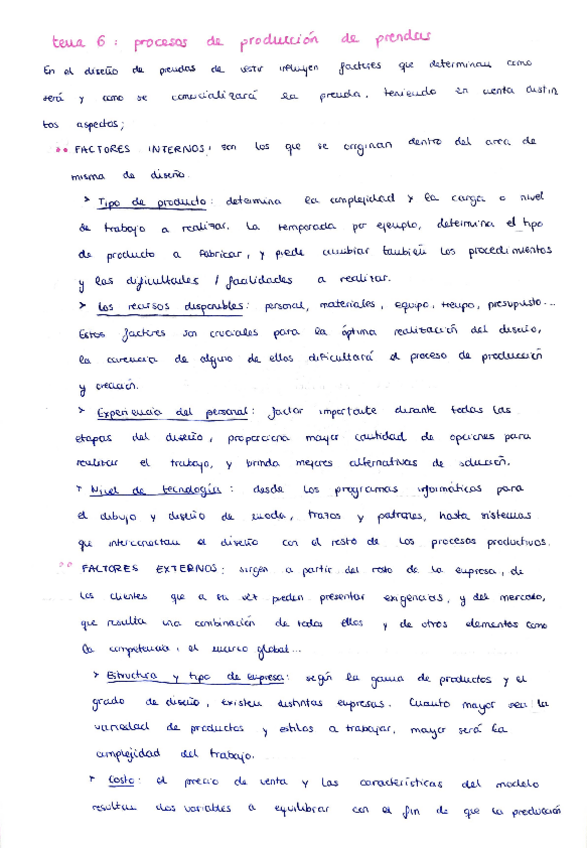 tema 6: procesos de producción de prendas
En el diseño de prendas de vestir influyen factores que determinan como
será y como se comercializará la prenda, teniendo en cuenta distin
tos aspectos;
FACTORES INTERNOS: son los que se originan dentro del area de
misma de diseño.
> Tipo de producto: determina la complejidad y la carga o nivel
de trabajo a realizar. La temporada por ejemplo, determina el tipo
de producto a fabricar, y puede cambiar también los procedimientos
y las dificultades / facilidades a realizar.
> Los recursos disponibles: personal, materiales, equipo, tiempo, presupuesto...
Estos factores son cruciales para la óptima realización del diseño,
la carencia de alguno de ellos dificultará el proceso de producción
y creación.
> Experiencia del personal: factor importante durante todas las
etapas del diseño, proporciona mayor cantidad de opciones para
realizar el trabajo, y brinda mejores alternativas de solución.
> Nivel de tecnología: desde los programas informáticos para
el dibujo y diseño de moda, trazos y patrones, hasta sistemas
que interconectan el diseño con el resto de los procesos productivos.
FACTORES EXTERNOS: surgen a partir del resto de la empresa, de
los clientes que a su vez pueden presentar exigencias, y del mercado,
que resulta una combinación de todos ellos y de otros elementos como
la competencia, el marco global...
> Estructura y tipo de empresa: según la gama de productos y el
grado de diseño, existen distintas empresas. Cuanto mayor sea la
variedad de productos y estilos a trabajar, mayor será la
complejidad del trabajo.
> Costo: el precio de venta y las características del modelo
resultan dos variables a equilibrar con el fin de que la producción